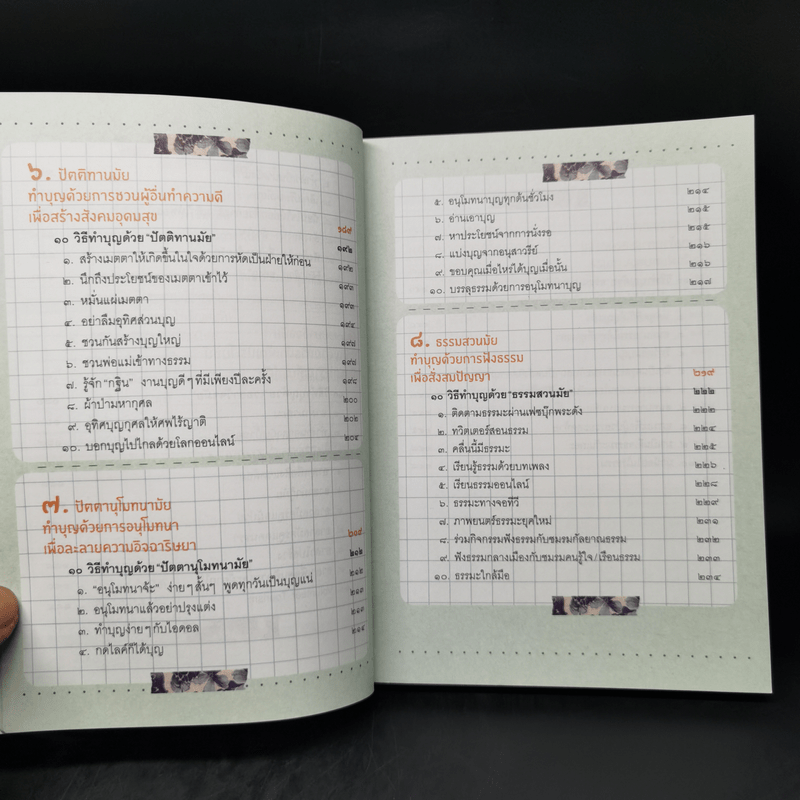 ๖. ปัตติทานมัย
ทำบุญด้วยการชวนผู้อื่นทำความดี
เพื่อสร้างสังคมอุดมสุข ๑๘๙
๑๐ วิธีทำบุญด้วย "ปัตติทานมัย" ๑๙๒
๑. สร้างเมตตาให้เกิดขึ้นในใจด้วยการหัดเป็นฝ่ายให้ก่อน ๑๙๒
๒. นึกถึงประโยชน์ของเมตตาเข้าไว้ ๑๙๓
๓. หมั่นแผ่เมตตา ๑๙๓
๔. อย่าลืมอุทิศส่วนบุญ ๑๙๔
๕. ชวนกันสร้างบุญใหญ่ ๑๙๘
๖. ชวนพ่อแม่เข้าทางธรรม ๑๙๘
๗. รู้จัก "กฐิน" งานบุญดีๆ ที่มีเพียงปีละครั้ง ๑๙๘
๘. ผ้าป่ามหากุศล ๒๐๐
๙. อุทิศบุญกุศลให้ศพไร้ญาติ ๒๐๒
๑๐. บอกบุญไปไกลด้วยโลกออนไลน์ ๒๐๔
๗. ปัตตานุโมทนามัย
ทำบุญด้วยการอนุโมทนา
เพื่อละลายความอิจฉาริษยา ๒๐๙
๑๐ วิธีทำบุญด้วย "ปัตตานุโมทนามัย" ๒๑๒
๑. "อนุโมทนาจ้ะ" ง่ายๆ สั้นๆ พูดทุกวันเป็นบุญแน่ ๒๑๒
๒. อนุโมทนาแล้วอย่าปรุงแต่ง ๒๑๓
๓. ทำบุญง่ายๆ กับไอดอล ๒๑๓
๔. กดไลค์ก็ได้บุญ ๒๑๔
๕. อนุโมทนาบุญทุกต้นชั่วโมง ๒๑๔
๖. อ่านเอาบุญ ๒๑๕
๗. หาประโยชน์จากการนั่งรอ ๒๑๕
๘. แบ่งบุญจากอนุสาวรีย์ ๒๑๖
๙. ขอบคุณเมื่อไหร่ได้บุญเมื่อนั้น ๒๑๖
๑๐. บรรลุธรรมด้วยการอนุโมทนาบุญ ๒๑๗
๘. ธรรมสวนมัย
ทำบุญด้วยการฟังธรรม
เพื่อสั่งสมปัญญา ๒๑๙
๑๐ วิธีทำบุญด้วย "ธรรมสวนมัย" ๒๒๒
๑. ติดตามธรรมะผ่านเฟซบุ๊กพระดัง ๒๒๒
๒. ทวิตเตอร์สอนธรรม ๒๒๔
๓. คลื่นนี้มีธรรมะ ๒๒๕
๔. เรียนรู้ธรรมด้วยบทเพลง ๒๒๖
๕. เรียนธรรมออนไลน์ ๒๒๘
๖. ธรรมะทางจอทีวี ๒๒๙
๗. ภาพยนตร์ธรรมะยุคใหม่ ๒๓๑
๘. ร่วมกิจกรรมฟังธรรมกับชมรมกัลยาณธรรม ๒๓๒
๙. ฟังธรรมกลางเมืองกับชมรมคนรู้ใจ/เรือนธรรม ๒๓๓
๑๐. ธรรมะใกล้มือ ๒๓๔